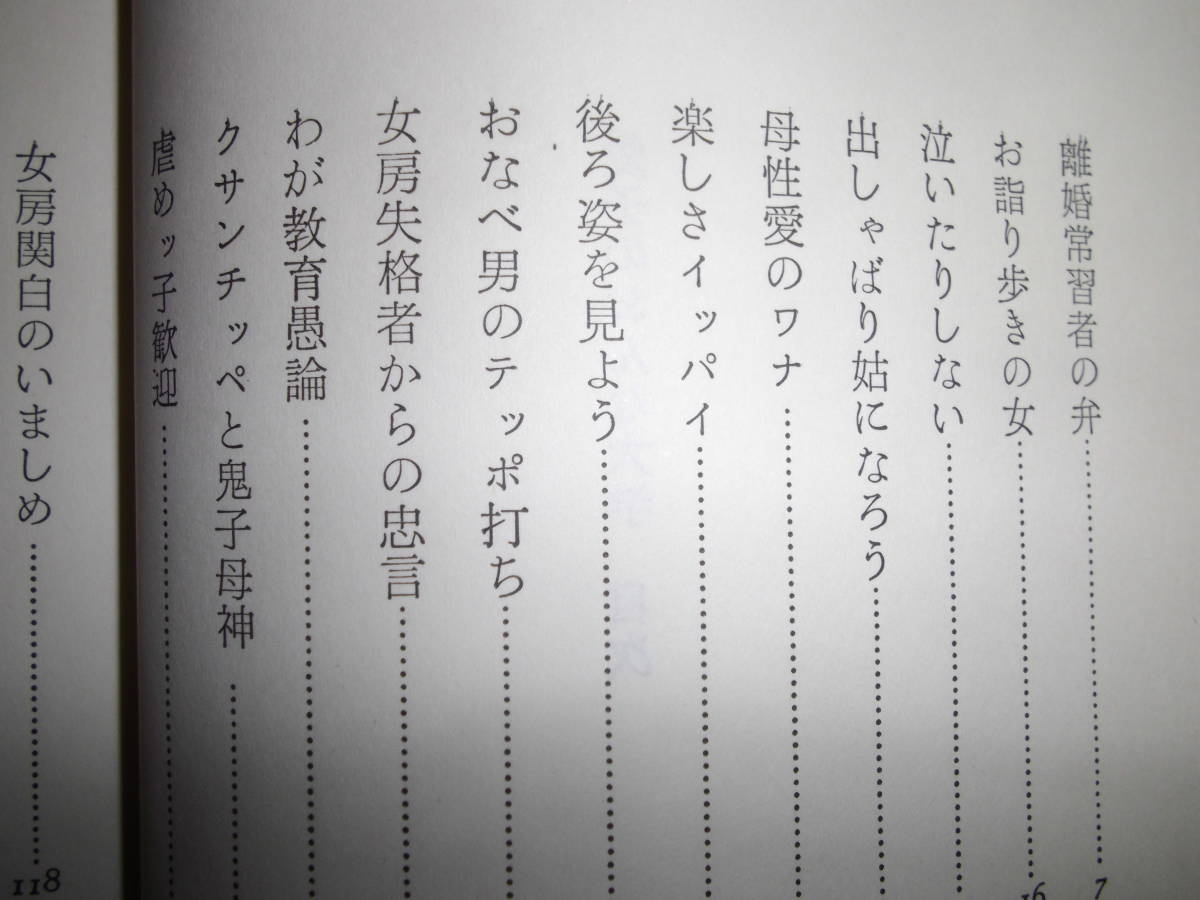 離婚常習者の弁……………7
お詣り歩きの女……………16
泣いたりしない……………
出しゃばり姑になろう……………
母性愛のワナ……………
楽しさイッパイ……………
後ろ姿を見よう……………
おなべ男のテッポ打ち……………
女房失格者からの忠言……………
わが教育愚論……………
クサンチッペと鬼子母神……………
虐めッ子歓迎……………
女房関白のいましめ……………118